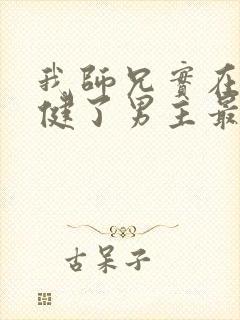 我師兄實在
健了男主最
古呆子